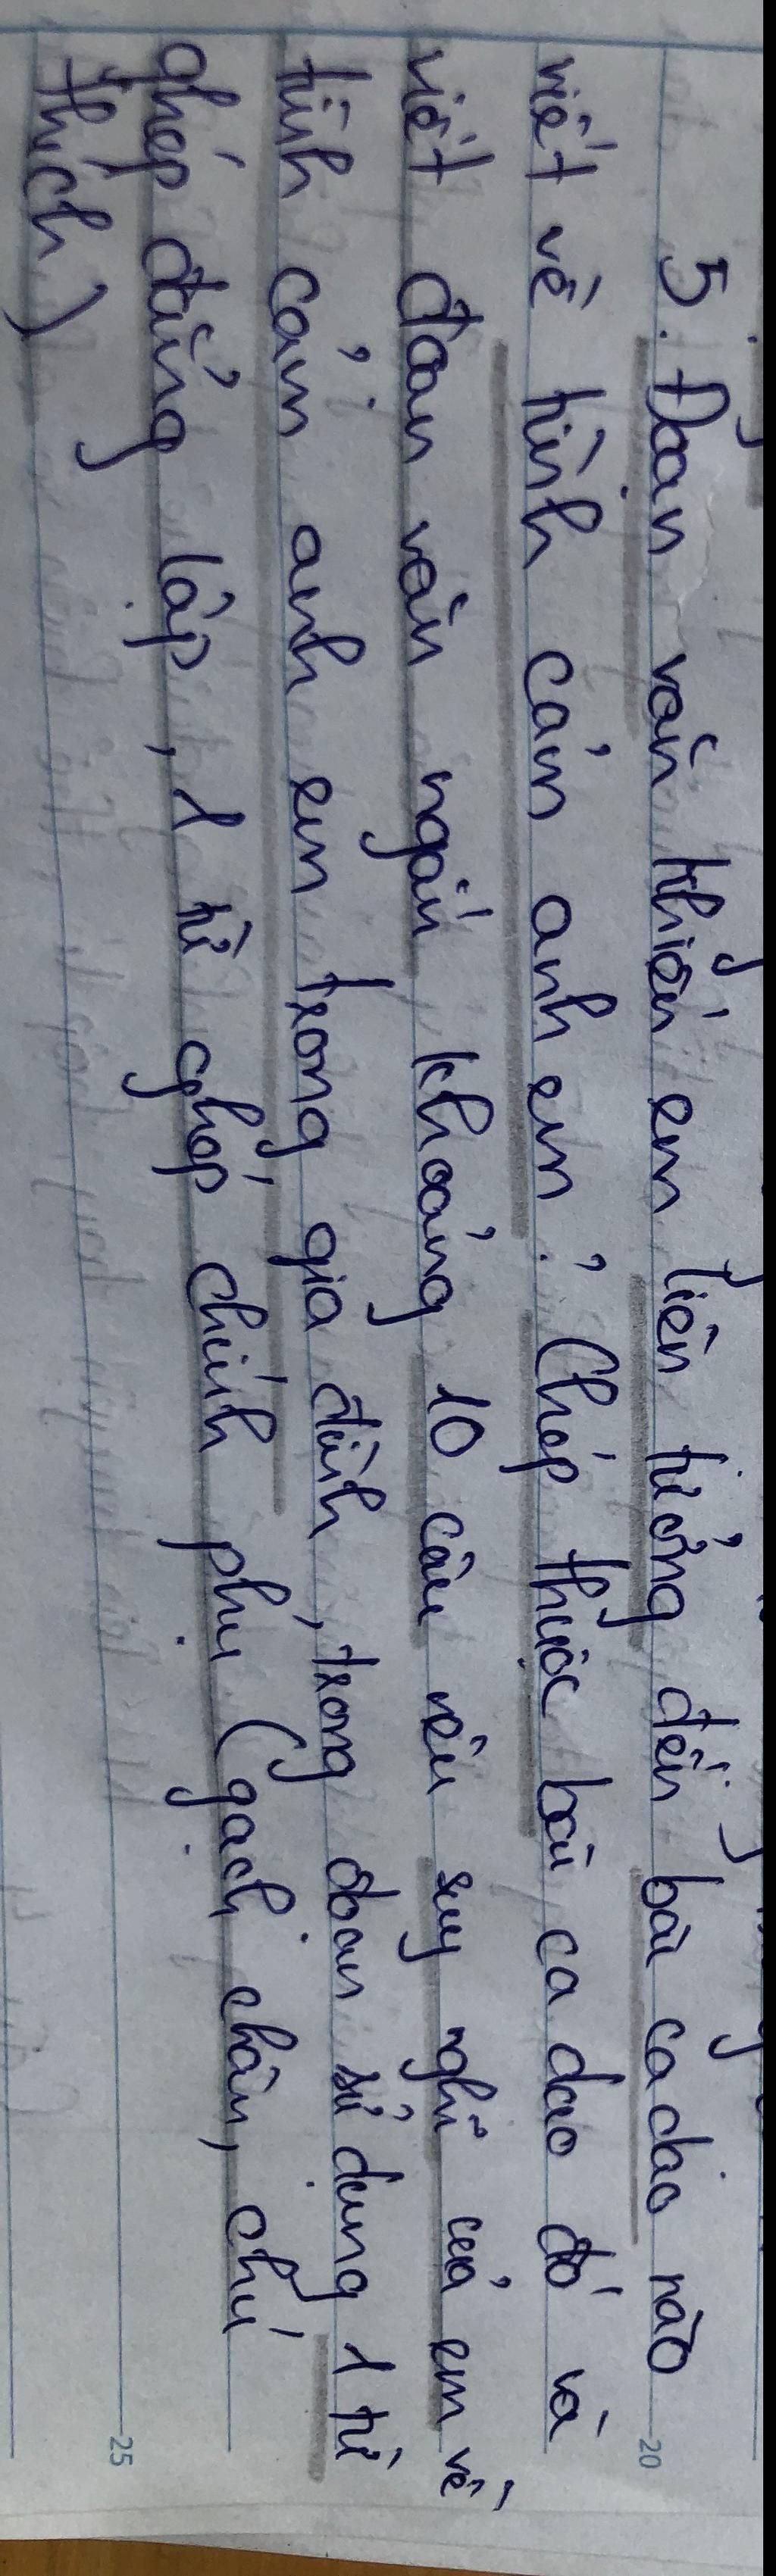 5. Đoạn văn khiến em liên tưởng đến bài ca dao nào
viết về tình cảm anh em? Chép thuộc bài ca dao đó và
viết đoạn văn ngắn khoảng 10 câu nêu suy nghĩ của em về
tình cảm anh em trong gia đình, trong đoạn sử dụng 1 từ
ghép đẳng lập, 1 từ ghép chính phụ (gạch chân, chú
thích)
20
25